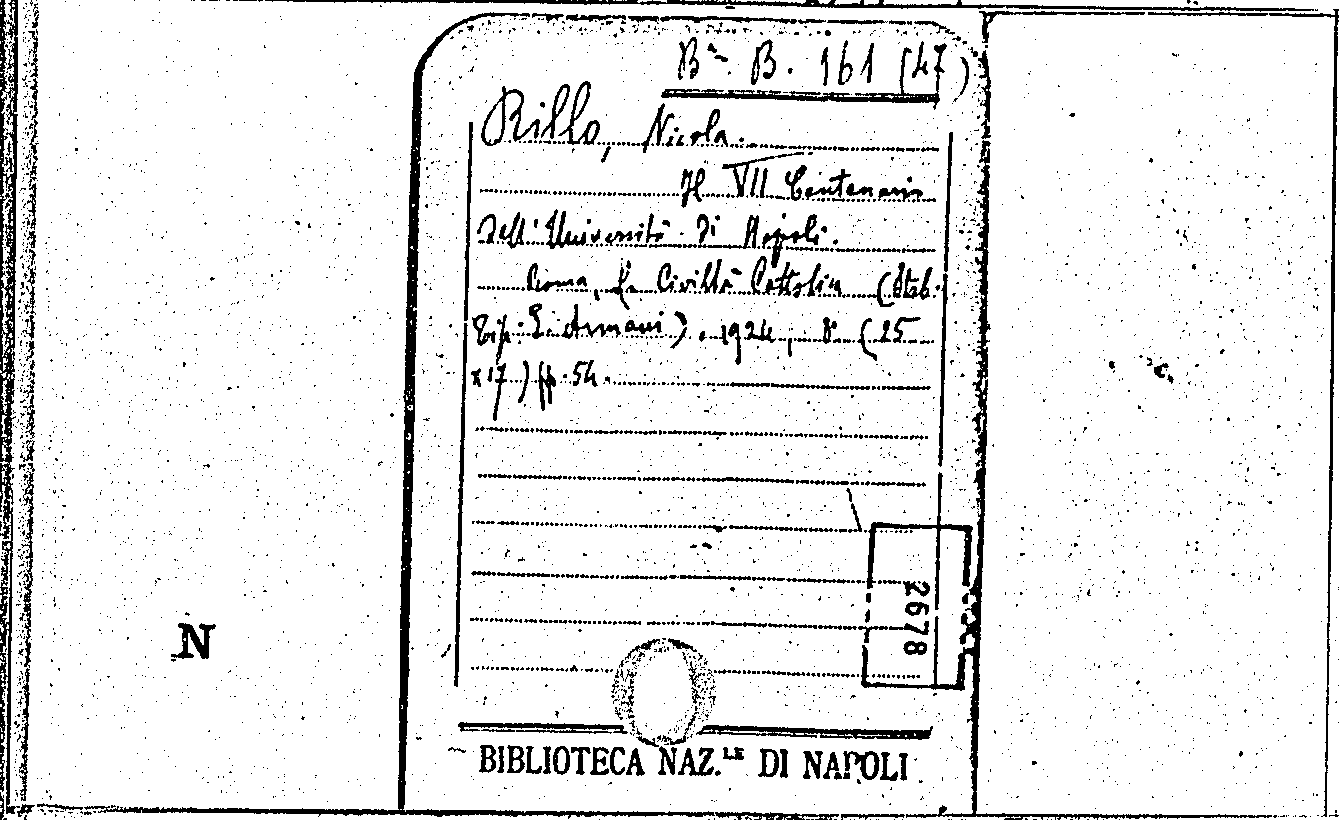 Bª. B. 161 (47)
Rillo, Nicola.
Il VII Centenario
dell'Università di Napoli.
Roma, La Civiltà Cattolica (Stab.
Tip. E. Armani), 1924, 8° (25
x17) pp. 54.
2678
N
BIBLIOTECA NAZ.LE DI NAPOLI